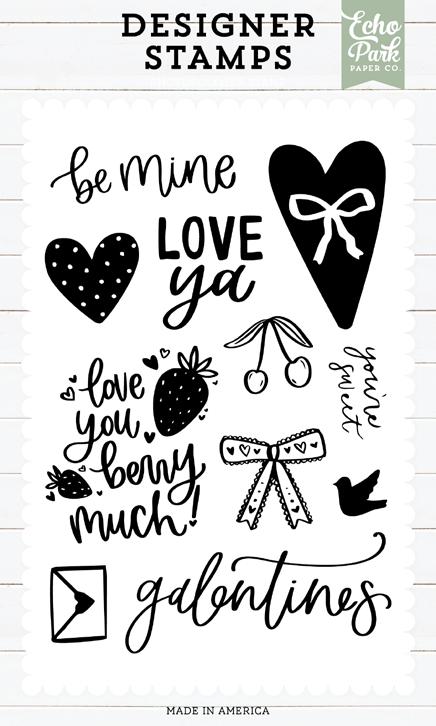 DESIGNER
STAMPS
Echo
Park
PAPER CO.
be mine
LOVE
ya
you're
sweet
love
you
berry
much!
galentines
MADE IN AMERICA